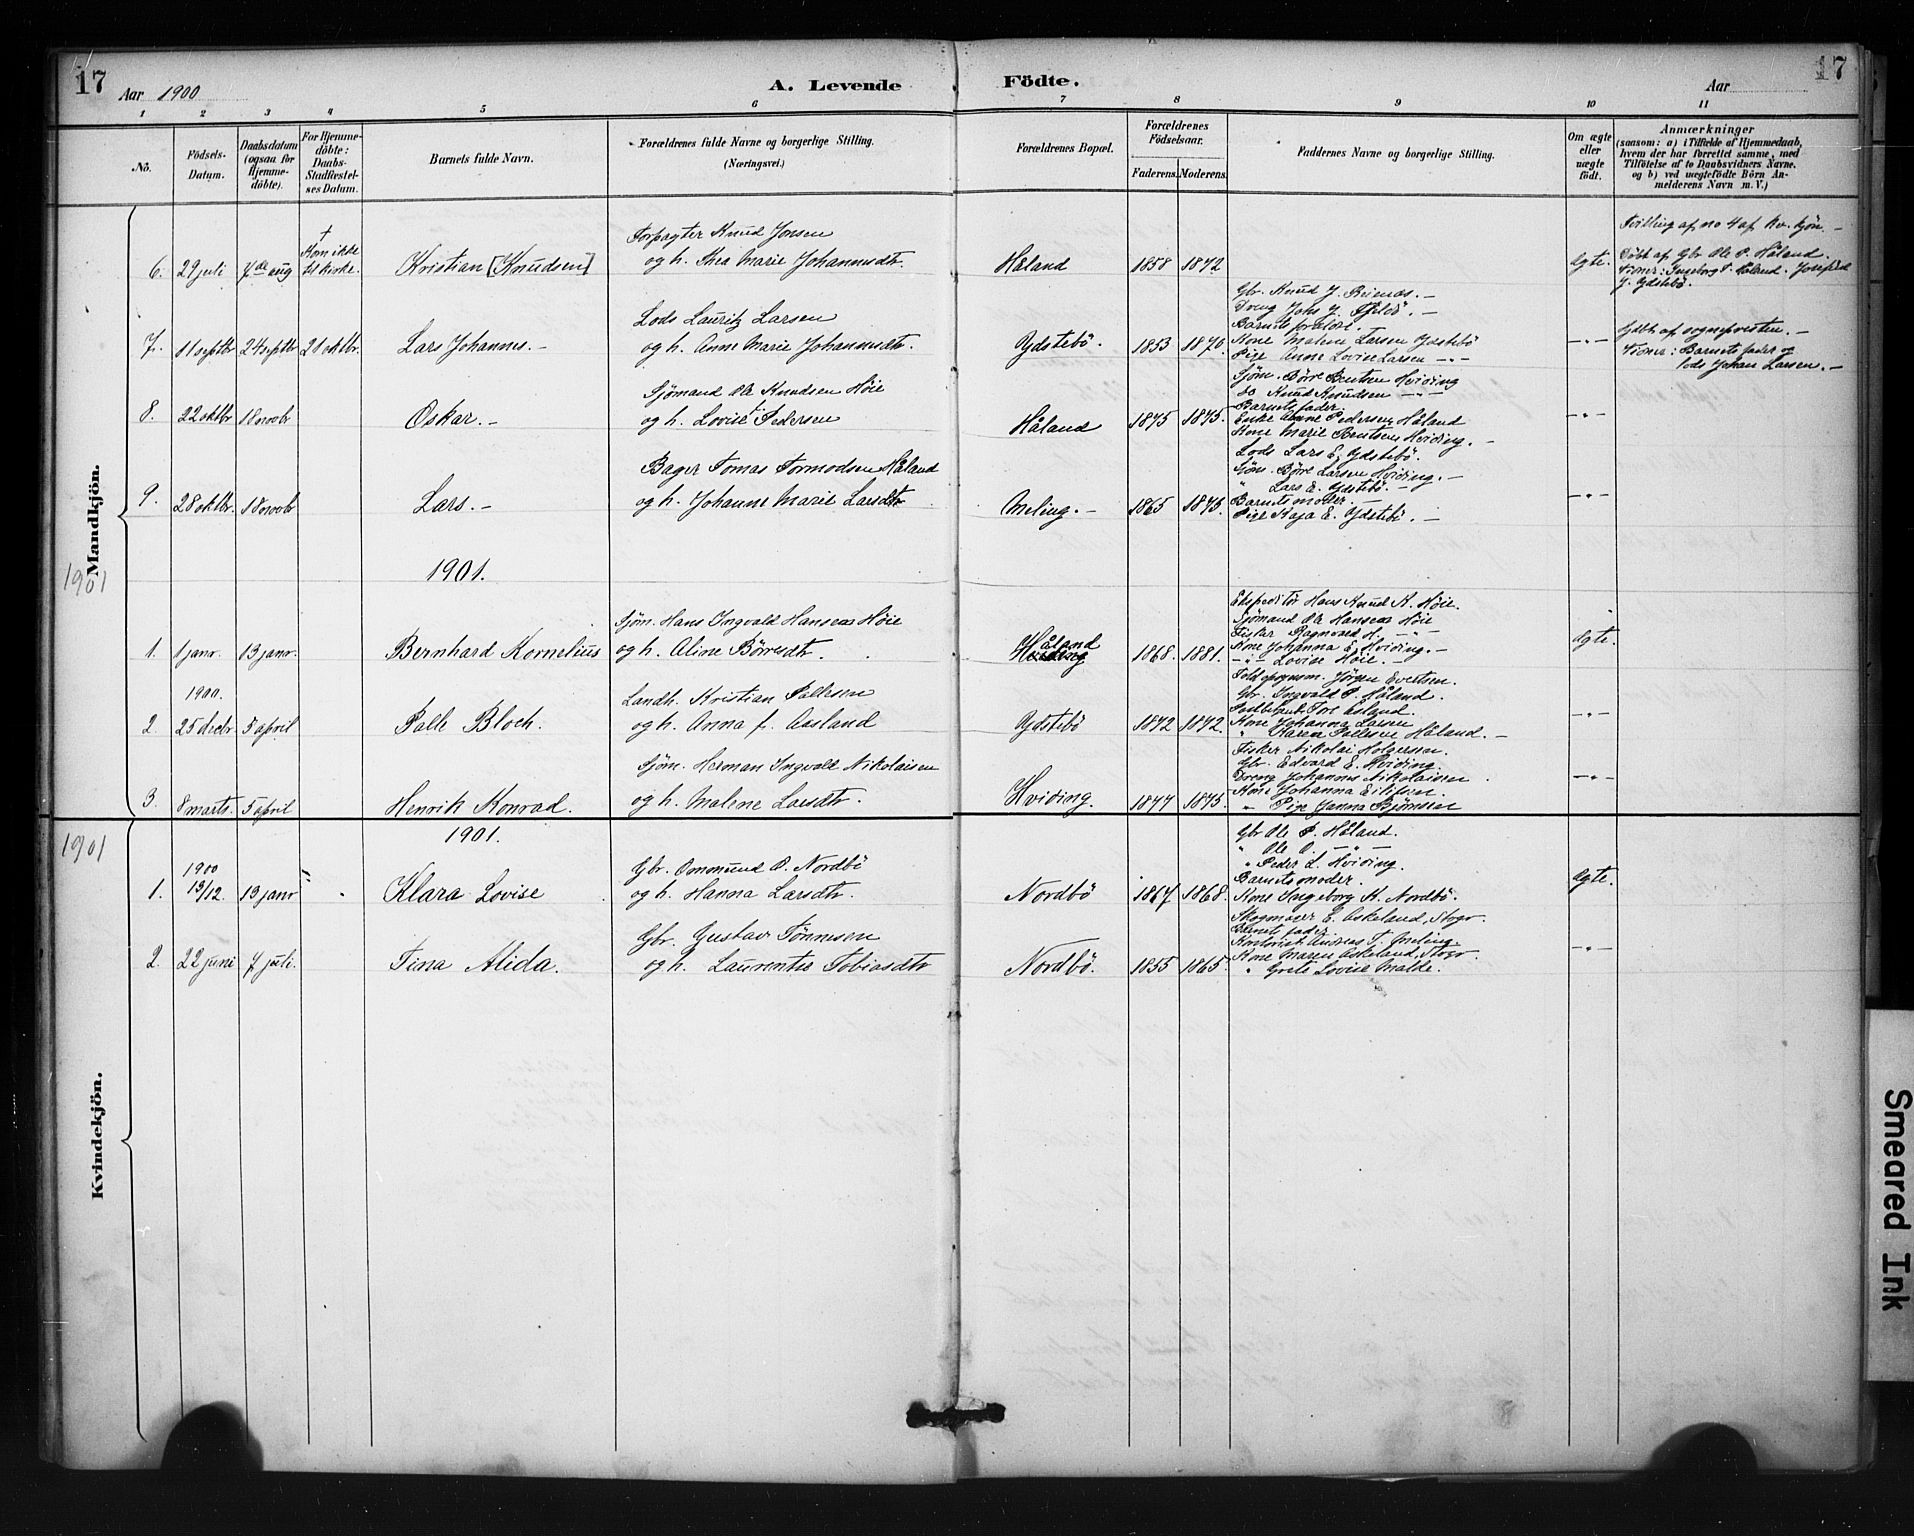 17
Aar 1900
A. Levende
Födte.
Aar
17
1 2 3 4 5 6 7 8 9 10 11
No.
Födsels-Datum.
Daabsdatum (ogsaa for Hjemme-döbte).
For Hjemme-döbte: Daabs-Stadfæstel-ses Datum.
Barnets fulde Navn.
Forældrenes fulde Navne og borgerlige Stilling. (Næringsvei.)
Forældrenes Bopæl.
Forældrenes Födselsaar.
Faderens. Moderens.
Faddernes Navne og borgerlige Stilling.
Om ægte eller uægte födt.
Anmærkninger
(saasom: a) i Tilfælde af Hjemmedaab, hvem der har forrettet samme, med Tilföielse af to Daabsvidners Navne, og b) ved uægtefödte Börn An-melderens Navn m. V.)
Mandkjön.
†
Kom ikke til kirke.
Forpagter Knud Jonsen
Tvilling af no 4 af kv. kjön. -
6. 29 juli 7de aug Kristian [Knudsen] og h. Thea Marie Johannesdtr. Håland 1858 1872 ægte.
Döbt af Gbr Ole P. Håland.
Vidner: Ingeborg T. Håland. Josefine
J. Ydstebö.
Gbr. Knud J. Reines. -
Dreng Johs J. Fjeldö. -
Lods Lauritz Larsen
Barnets forældre.
7. 11 septbr 24 septbr 28 oktbr. Lars Johannes. - og h. Anne Marie Johannesdtr. Ydstebö. 1853 1870 -"-
Kone Malene Larsen Ydstebö
Pige Anne Lovise Larsen -"-
Hdbt af sognepresten. -
Vidner: Barnets fader og
lods Johan Larsen. -
Sjömand Ole Knudsen Höie
Sjöm. Börre Bentsen Hviding
do Knud Knudsen -"-
Barnets fader.
8. 22 oktbr 18 novbr Oskar. - og h. Lovise Pedersen Håland 1875 1875. -"-
Enke Anne Pedersen Håland
Kone Marie Bentsen Hviding. -
Bager Tomas Tormodsen Håland
Lods Lars E. Ydstebö.
Sjöm. Börre Larsen Hviding. -
" Lars E. Ydstebö. -
9. 28 oktbr. 18 novbr Lars. - og h. Johanne Marie Larsdtr Meling. - 1865 1875. -"-
Barnets moder. -
Pige Kaja E. Ydstebö. -
1901
1901.
Sjöm. Hans Ingvald Hansen Höie
Ekspeditör Hans Knud K. Höie.
Sjömand Ole Hansen Höie
Fisker Ragnvald H. -"-
1. 1 janr. 13 janr. Bernhard Kornelius og h. Aline Börresdtr. Håland Hviding 1868. 1881. ægte.
Kone Johanna E. Hviding. -
-"- Lovise Höie. -
1900.
Landh. Kristian Pallesen
Told opsynsm. Jörgen Evertsen.
Gbr. Ingvald P. Håland.
2. 25 decbr 5 april Palle Bloch. og h. Anna f. Aasland Ydstebö 1872 1872. -"-
Kone Johanna Larsen
" Karen Pallesen Håland. -
Sjöm. Herman Ingvald Nikolaisen
Fisker Nikolai Holgersen.
Gbr. Edvard E. Hviding.
Dreng Johannes Nikolaisen
3. 8 marts. 5 april Henrik Konrad. og h. Malene Larsdtr. Hviding. 1877 1875. -"-
Kone Johanna Eilifsen.
" Pige Janna Bjömsen
Kvindekjön.
1901
1901.
Gbr Ole P. Håland.
" Ole O. -"-
" Peder L. Hviding.
1900
Gbr. Ommund O. Nordbö
Barnets moder.
1. 13/12. 13 janr " Klara Lovise og h. Hanna Larsdtr. Nordbö 1867. 1868. ægte.
Kone Ingeborg K. Nordbö.
Gbr. Gustav Tönnesen
Skogmager E. Askeland, Stvgr.
Barnets fader.
Kontorist Andreas T. Meling.
2. 22 juni 7 juli. Tina Alida. og h. Laurentse Tobiasdtr Nordbö. 1855 1865. -"-
Kone Maren Askeland, Stvgr.
" Grete Lovise Malde.
Smeared Ink